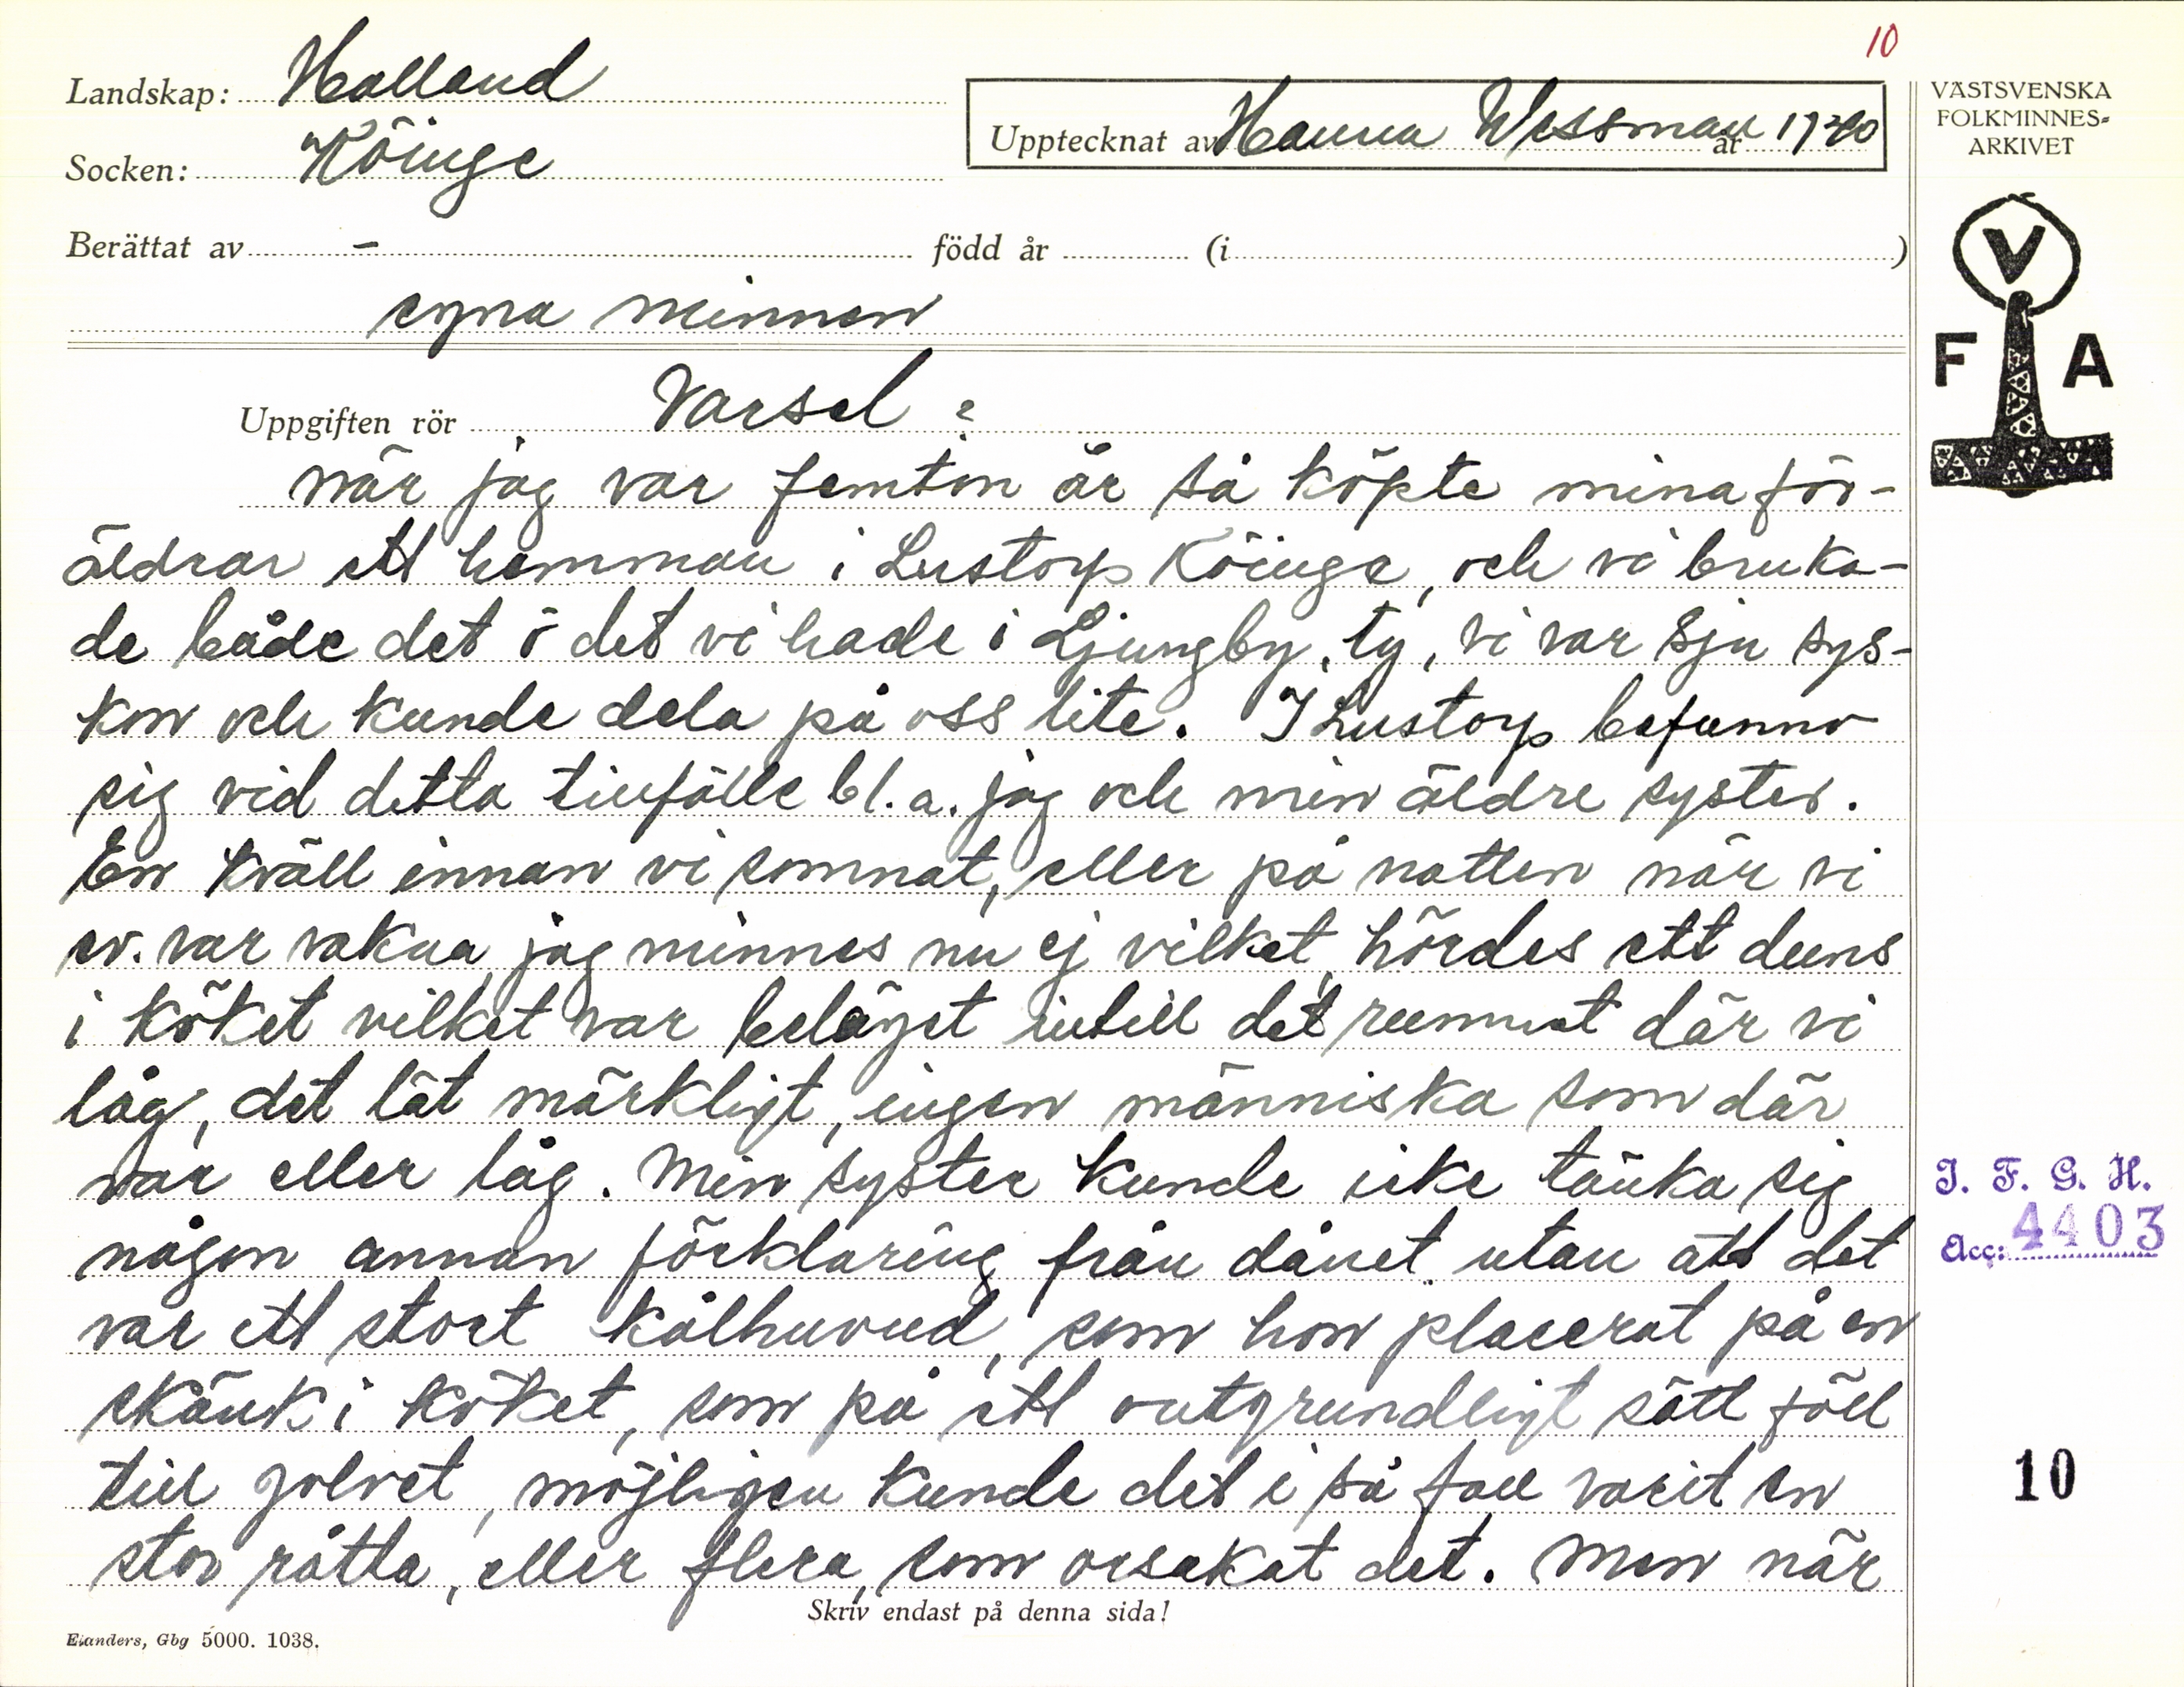 10
Landskap: Halland
Socken: Köinge
Upptecknat av Hanna Wessman år 1940
VÄSTSVENSKA
FOLKMINNES-
ARKIVET
Berättat av – född år (i )
egna minnen
V
F A
Uppgiften rör Varsel:
När jag var femton år så köpte mina för-
äldrar ett hemman i Lustorp Köinge, och vi bruka-
de både det o det vi hade i Ljungby, ty, vi var sju sys-
kon och kunde dela på oss lite. I Lustorp befunno
sig vid detta tillfälle bl.a. jag och min äldre syster.
En kväll innan vi somnat, eller på natten när vi
ev. var vakna, jag minnes nu ej vilket, hördes ett duns
i köket vilket var beläget intill det rummet där vi
låg, det lät märkligt, ingen människa som där
var eller låg. Min syster kunde icke tänka sig
någon annan förklaring från dånet utan att det
var ett stort kålhuvud, som hon placerat på en
skänk i köket, som på ett outgrundligt sätt föll
till golvet, möjligen kunde det i så fall varit en
stor råtta, eller flera, som orsakat det. Men när
I. F. G. H.
Acc: 4403
10
Skriv endast på denna sida!
Elanders, Gbg 5000. 1038.